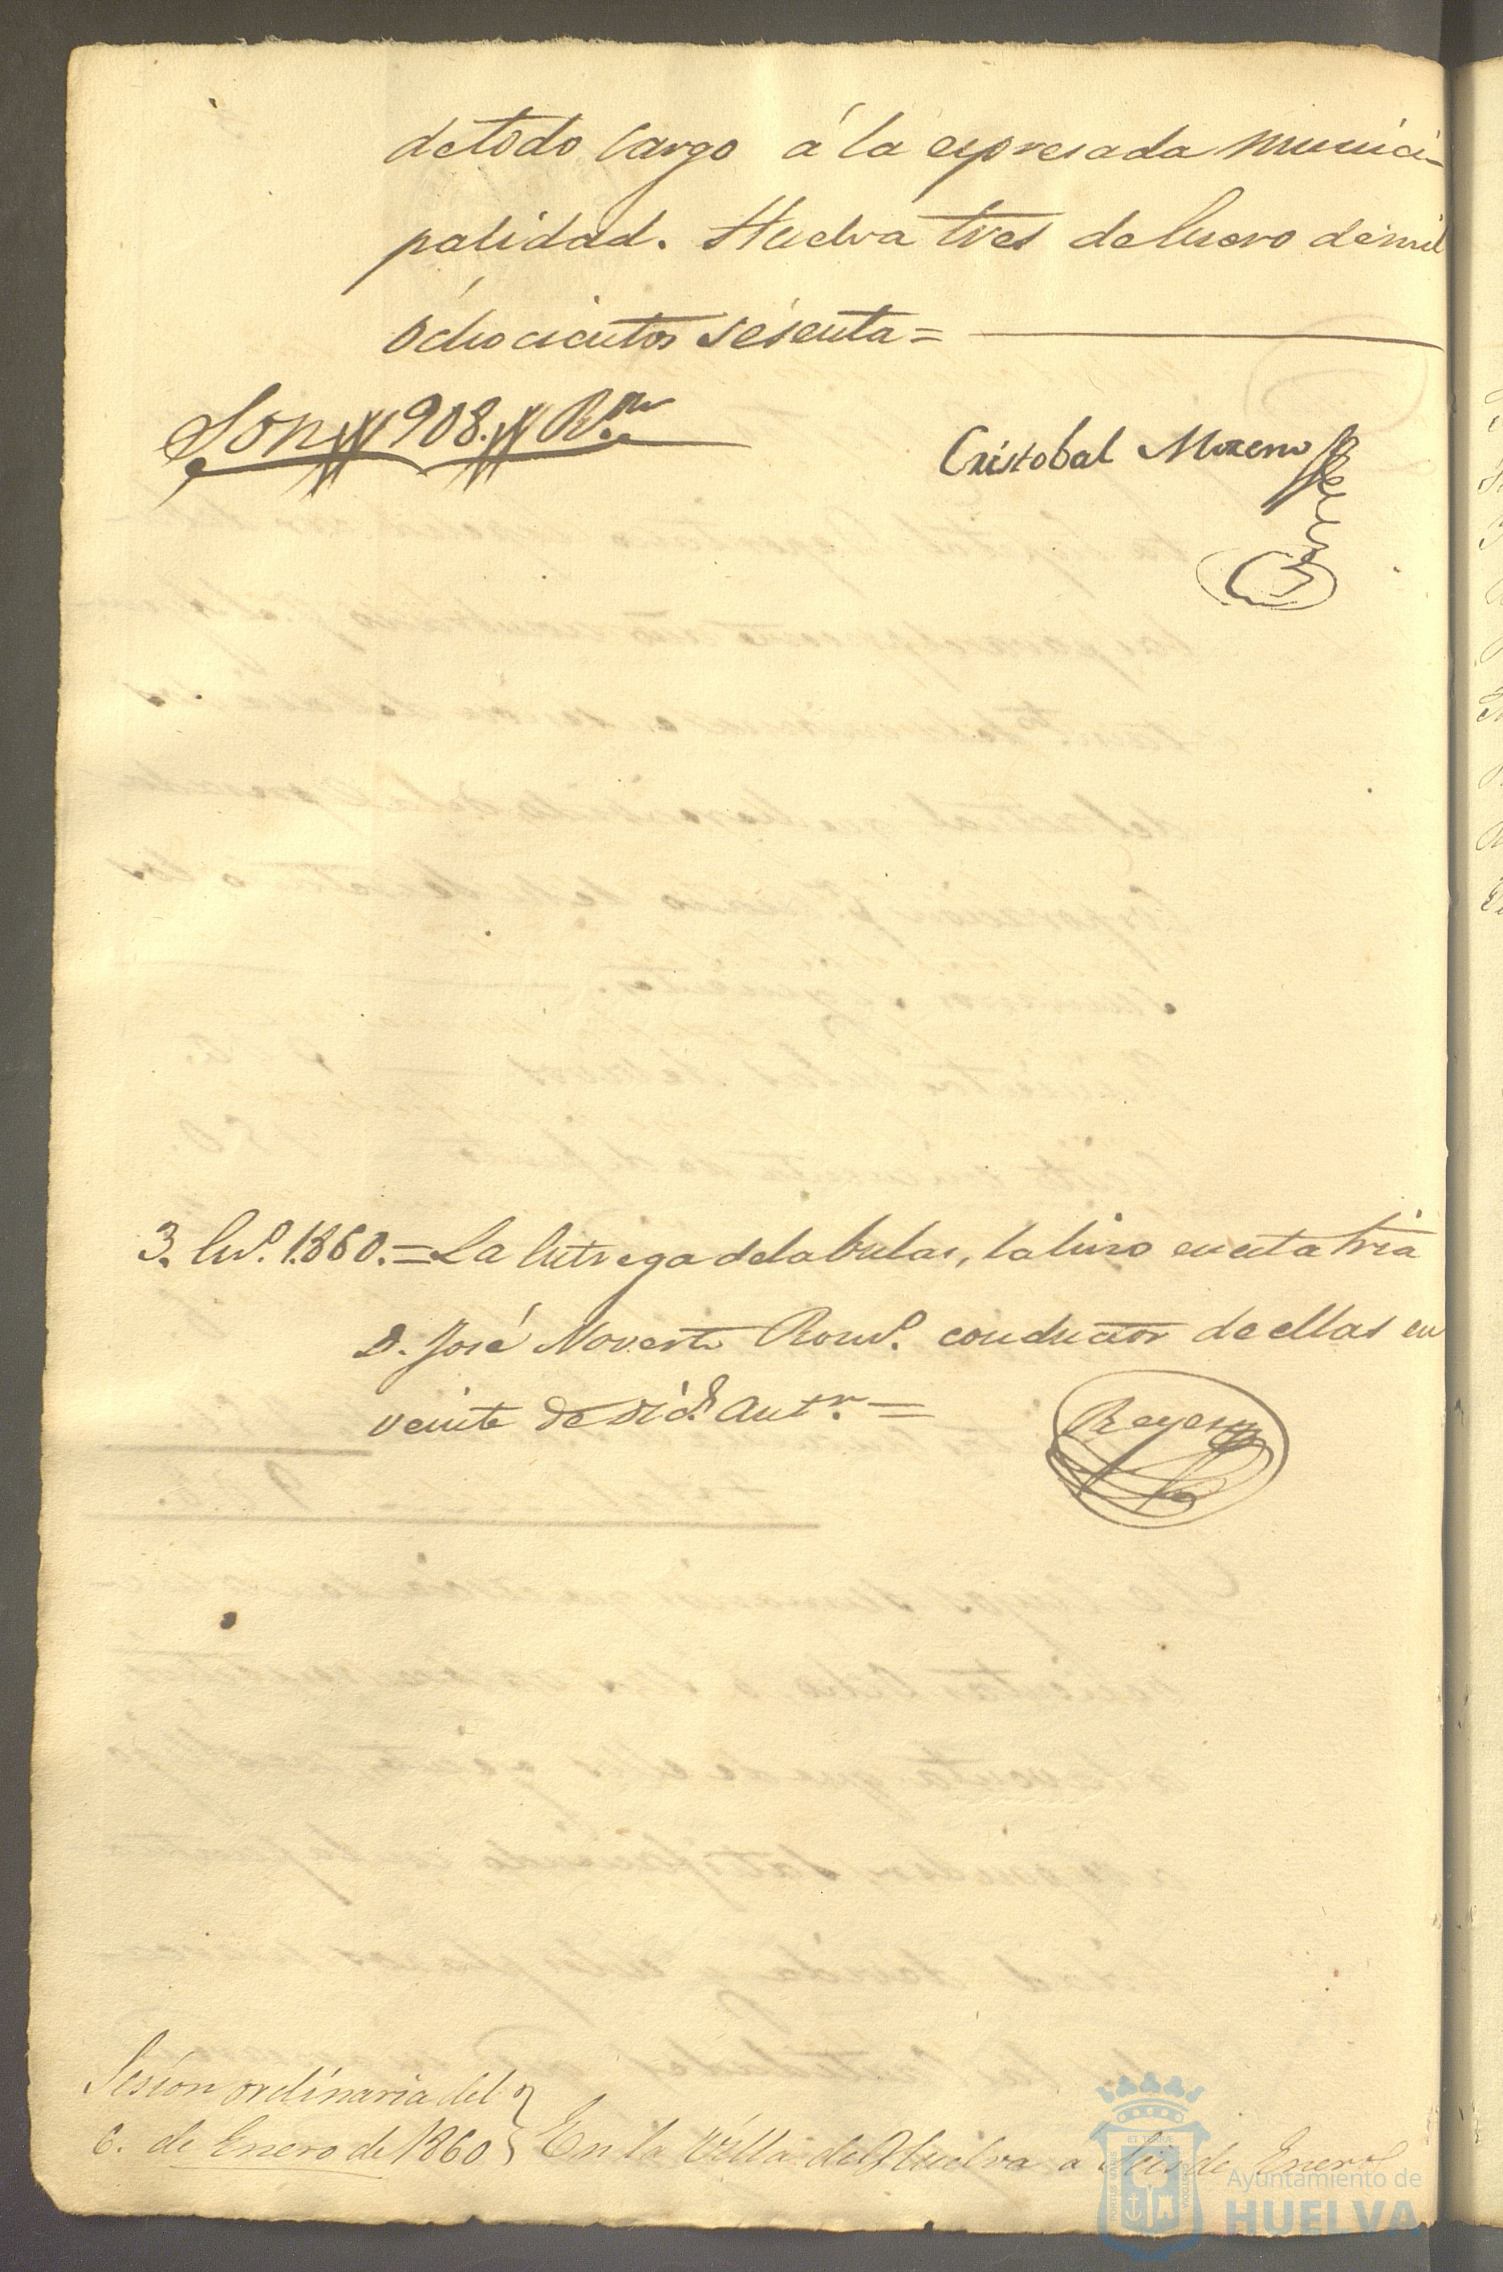 de todo cargo á la espresada munici-
palidad. Huelva tres de Enero de mil
ochocientos sesenta=
Son 908. Rs.
Cristobal Moreno
3. En.o 1.860.=La entrega de la bulas, la hizo en esta tria
D. José Noverto Rom.o conductor de ellas en
veinte de Dic.e ant.r =
Reyes
Sesion ordinaria del
6. de Enero de 1860
En la Villa de Huelva a Seis de Enero
Ayuntamiento de
HUELVA